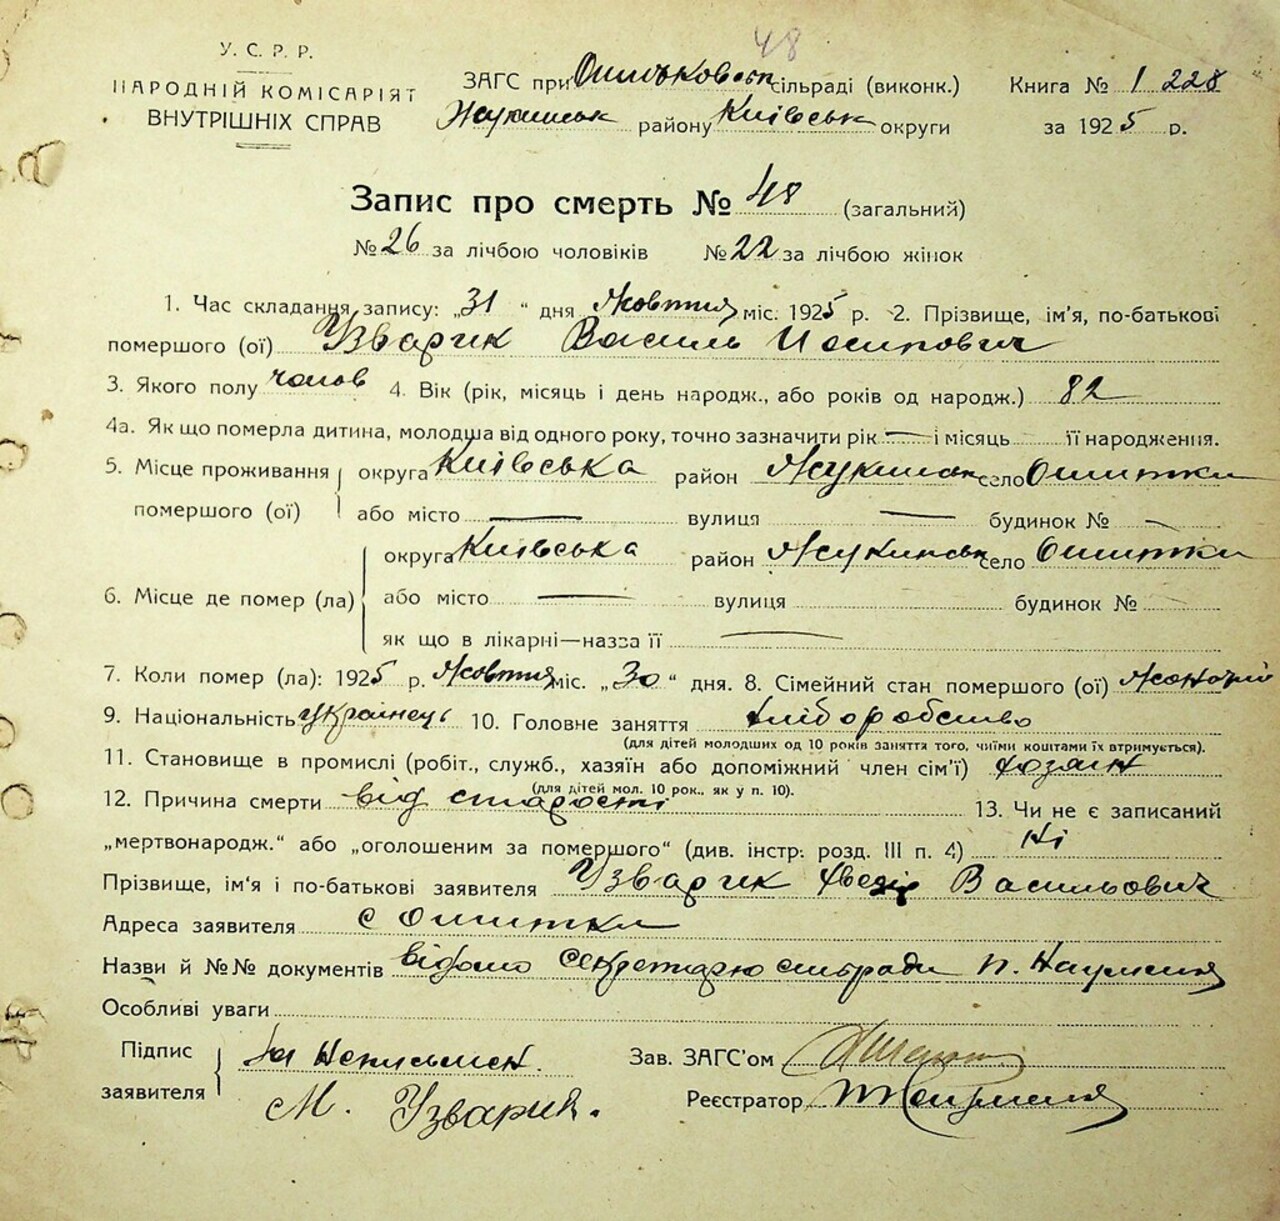 48
У. С. Р. Р.
НАРОДНІЙ КОМІСАРІЯТ
ВНУТРІШНІХ СПРАВ
ЗАГС при Ошитьковськ сільраді (виконк.)
Жукинськ району Київськ округи
Книга № 1 228
за 1925 р.
Запис про смерть № 48 (загальний)
№ 26 за лічбою чоловіків № 22 за лічбою жінок
1. Час складання запису: „31 “ дня Жовтня міс. 1925 р. 2. Прізвище, ім'я, по-батькові
помершого (ої) Узварик Василь Иосипович
3. Якого полу чолов 4. Вік (рік, місяць і день народж., або років од народж.) 82
4а. Як що померла дитина, молодша від одного року, точно зазначити рік — і місяць її народження.
5. Місце проживання помершого (ої) округа Київська район Жукинськ село Ошитки
або місто — вулиця — будинок № —
6. Місце де помер (ла) округа Київська район Жукинськ село Ошитки
або місто — вулиця будинок № —
як що в лікарні—назва її —
7. Коли помер (ла): 1925 р. Жовтня міс. „30“ дня. 8. Сімейний стан помершого (ої) Жонатий
9. Національність Українець 10. Головне заняття хліборобство
(для дітей молодших од 10 років заняття того, чиїми коштами їх втримується).
11. Становище в промислі (робіт., служб., хазяїн або допоміжний член сім'ї) хозаїн
(для дітей мол. 10 рок., як у п. 10).
12. Причина смерти від старості 13. Чи не є записаний
„мертвонародж.“ або „оголошеним за помершого“ (див. інстр. розд. III п. 4) Ні
Прізвище, ім'я і по-батькові заявителя Узварик Хведір Васильович
Адреса заявителя с Ошитки
Назви й №№ документів відомо секретарю сільради П. Науменку
Особливі уваги
Підпис заявителя За неписьмен.
М. Узварик.
Зав. ЗАГС'ом
Реєстратор П Науменко